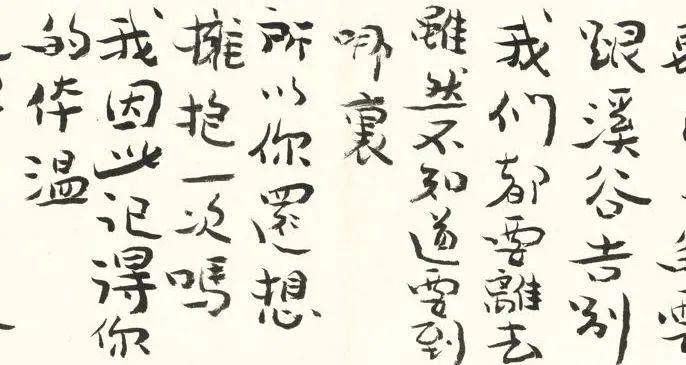 跟溪谷告别
我们都要離去
雖然不知道要到
哪裏
所以你還想
擁抱一次嗎
我因此记得你
的体温